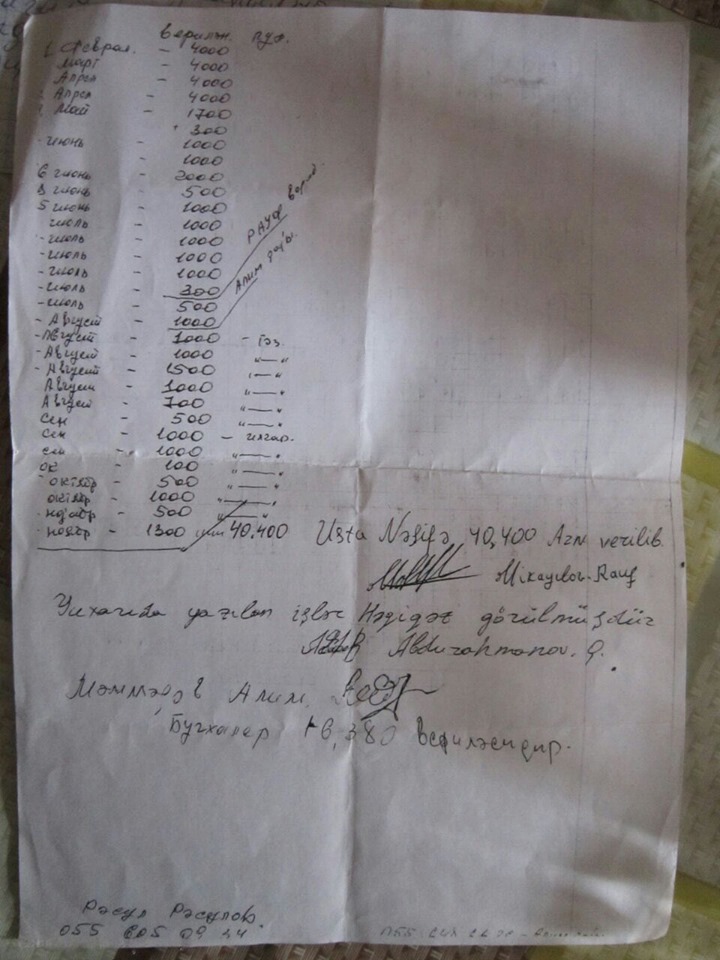 верилм. пул.
1. Феврал. - 4000
Март - 4000
Апрел - 4000
Апрел - 4000
Май - 1700
300
- июнь - 1000
- 1000
6 июнь - 2000
8 июнь - 500
5 июнь - 1000
июль - 1000
- июль - 1000
- июль - 1000
- июль - 1000
- июль - 300 РАУФ
- июль - 500
- Август - 1000 Алим
- Август - 1000 -
- Август - 1000 "—"
- Август - 1500 "—"
Август - 1000 "—"
Август - 700 "—"
сен - 500 "—"
сен - 1000 - илгар.
сен - 1000 "—"
ок - 100 "—"
октябр - 500 "—"
октябр - 1000 "—"
- ноябр - 500 "—"
- ноябр - 1300 40.400
Usta Nəsifə 40,400 Azn verilib
Mikayılov-Rauf
Yuxarıda yazılan işlər Həqiqət görülmüşdür
Abdurahmanov. Q.
Мəммəдов Алим.
Бугхалер 380
Рəсул Рəсулов
055 605 09 44